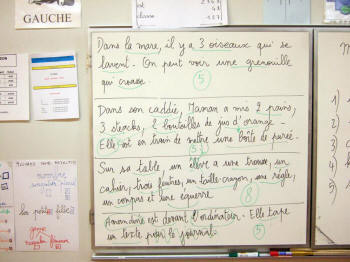 GAUCHE
Dans la mare, il y a 3 oiseaux qui se
lavent. On peut voir une grenouille
qui croasse.
5
Dans son caddie, Maman a mis 2 pains,
3 steacks, 2 bouteilles de jus d'orange.
Elle est en train de mettre une boîte de purée.
Sur sa table, un élève a une trousse, un
cahier, trois feutres, un taille-crayon, une règle,
un compas et une équerre.
8
Amandine est devant l'ordinateur. Elle tape
un texte pour le journal.
5
1)
2)
3)
4)
5)